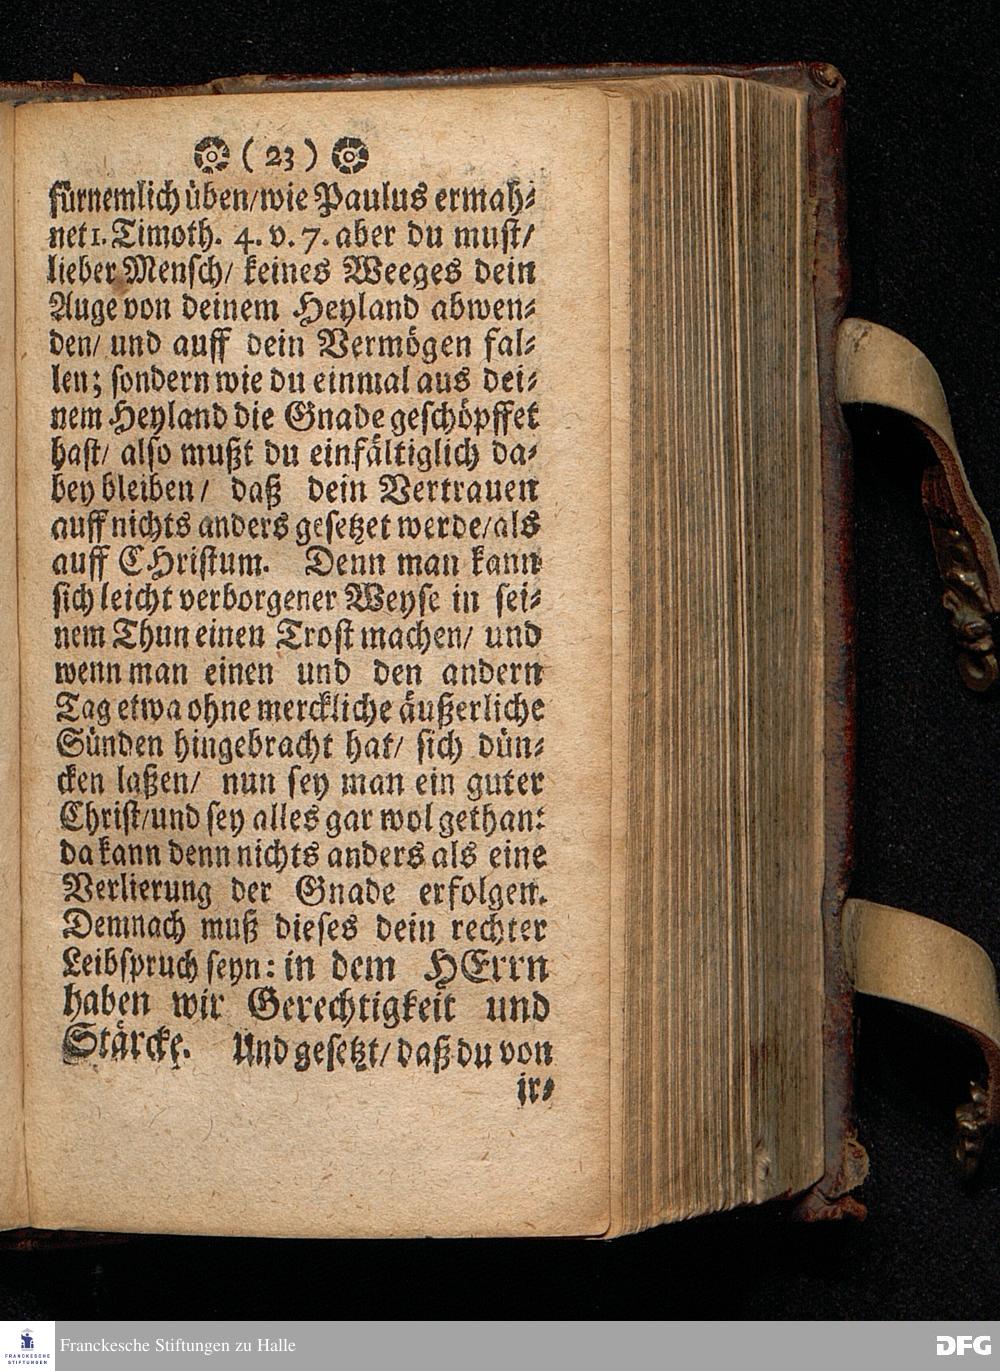 ( 23 )
fürnemlich üben/wie Paulus ermah⸗
net 1. Timoth. 4. v. 7. aber du must/
lieber Mensch/ keines Weeges dein
Auge von deinem Heyland abwen⸗
den/ und auff dein Vermögen fal⸗
len; sondern wie du einmal aus dei⸗
nem Heyland die Gnade geschöpffet
hast/ also mußt du einfältiglich da⸗
bey bleiben/ daß dein Vertrauen
auff nichts anders gesetzet werde/als
auff CHristum. Denn man kann
sich leicht verborgener Weyse in sei⸗
nem Thun einen Trost machen/ und
wenn man einen und den andern
Tag etwa ohne merckliche äußerliche
Sünden hingebracht hat/ sich dün⸗
cken laßen/ nun sey man ein guter
Christ/und sey alles gar wol gethan:
da kann denn nichts anders als eine
Verlierung der Gnade erfolgen.
Demnach muß dieses dein rechter
Leibspruch seyn: in dem HErrn
haben wir Gerechtigkeit und
Stärcke. Und gesetzt/ daß du von
ir⸗
FRANCKESCHE
STIFTUNGEN
Franckesche Stiftungen zu Halle
DFG